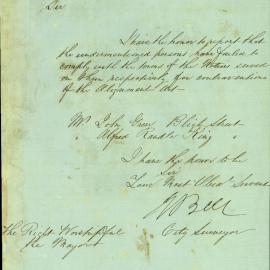 Sir
I have the honor to report that
the undermentioned persons have failed to
comply with the terms of the Notices served
on them respectively for contraventions
of the Alignment Act
Mr John Bligh Street
Alfred Randle King "
I have the honor to be
Sir
Your Most Obedt Servant
W Bell
City Surveyor
The Right Worshipful
The Mayor